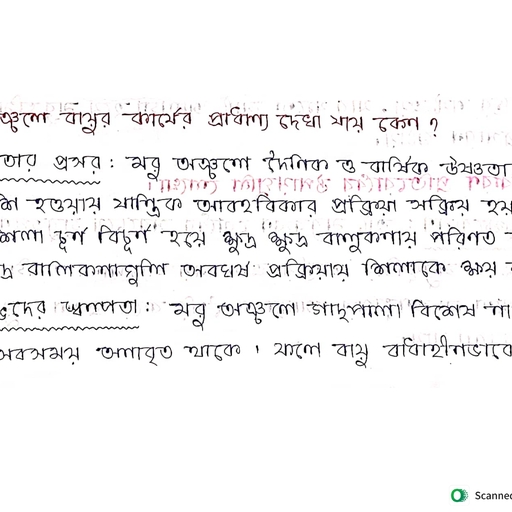 ঞ্চলে বায়ুর কার্যের প্রাধান্য দেখা যায় কেন ?
তার প্রসর : মরু অঞ্চলে দৈনিক ও বার্ষিক উষ্ণতা
শি হওয়ায় যান্ত্রিক আবহবিকার প্রক্রিয়া সক্রিয় হয়
শিলা চূর্ণ বিচূর্ণ হয়ে ক্ষুদ্র ক্ষুদ্র বালুকনায় পরিণত
দ্র বালিকনাগুলি অবঘর্ষ প্রক্রিয়ায় শিলাকে ক্ষয়
দের স্বল্পতা : মরু অঞ্চলে গাছপালা বিশেষ না
সবসময় অনাবৃত থাকে । ফলে বায়ু বাধাহীনভাবে
Scanned